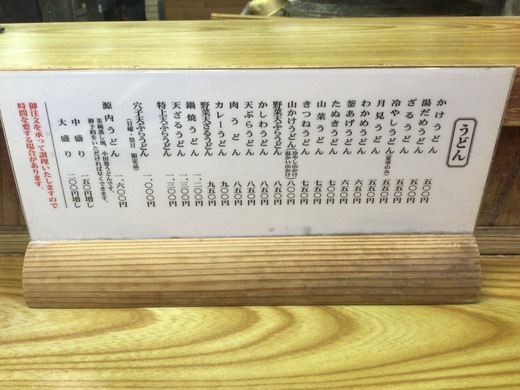 うどん
かけうどん 五〇〇円
湯だめうどん 五〇〇円
ざるうどん 五五〇円
冷やしうどん(夏季のみ) 五五〇円
月見うどん 五五〇円
わかめうどん 六五〇円
釜あげうどん 六五〇円
たぬきうどん 六五〇円
きつねうどん 七〇〇円
山菜うどん 七五〇円
山かけうどん 八五〇円
野菜天ぷらうどん 八五〇円
かしわうどん 八五〇円
天ぷらうどん 八五〇円
肉うどん 八五〇円
カレーうどん 九五〇円
野菜天ざるうどん 九五〇円
鍋焼うどん 一、二〇〇円
天ざるうどん 一、三〇〇円
特上天ぷらうどん 一、三〇〇円
穴子天ぷらうどん 一、〇〇〇円
(日曜・祭日 限定品)
源内うどん 一、六〇〇円
中盛り 一五〇円増し
大盛り 二〇〇円増し
御注文を承って調理いたしますので
時間を要する場合があります。